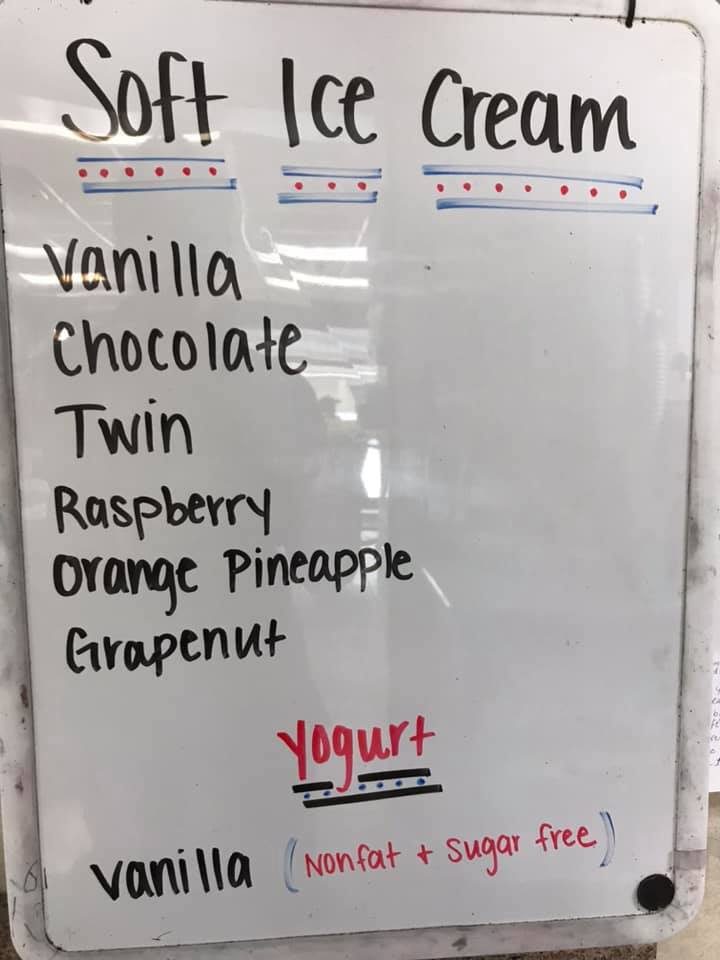 Soft Ice Cream
Vanilla
Chocolate
Twin
Raspberry
Orange Pineapple
Grapenut
Yogurt
Vanilla (Nonfat + Sugar free)